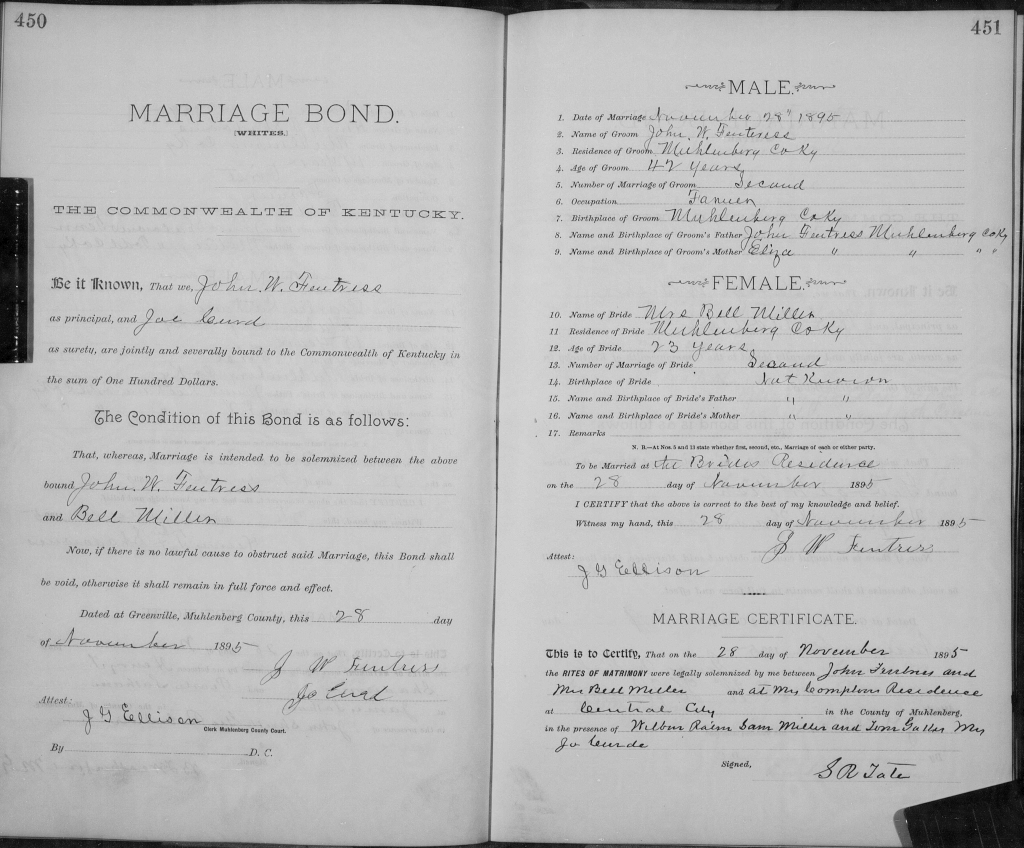 450
MARRIAGE BOND.
[WHITES.]
THE COMMONWEALTH OF KENTUCKY.
Be it Known, That we, John. W. Fentress
as principal, and Joe Curd
as surety, are jointly and severally bound to the Commonwealth of Kentucky in
the sum of One Hundred Dollars.
The Condition of this Bond is as follows:
That, whereas, Marriage is intended to be solemnized between the above
bound John. W. Fentress
and Bell Miller
Now, if there is no lawful cause to obstruct said Marriage, this Bond shall
be void, otherwise it shall remain in full force and effect.
Dated at Greenville, Muhlenberg County, this 28 day
of November 1895
J W Fentress
Jo Curd
Attest:
J G Ellison
Clerk Muhlenberg County Court.
By D. C.
451
MALE.
1. Date of Marriage November 28" 1895
2. Name of Groom John. W. Fentress
3. Residence of Groom Muhlenberg Co Ky
4. Age of Groom 42 Years
5. Number of Marriage of Groom Second
6. Occupation Farmer
7. Birthplace of Groom Muhlenberg Co Ky
8. Name and Birthplace of Groom's Father John Fentress Muhlenberg Co Ky
9. Name and Birthplace of Groom's Mother Eliza " " " "
FEMALE.
10. Name of Bride Mrs Bell Miller
11 Residence of Bride Muhlenberg Co Ky
12. Age of Bride 23 Years
13. Number of Marriage of Bride Second
14. Birthplace of Bride Not Known
15. Name and Birthplace of Bride's Father " "
16. Name and Birthplace of Bride's Mother " "
17. Remarks
N. B.—At Nos. 5 and 13 state whether first, second, etc., Marriage of each or either party.
To be Married at At Brides Residence
on the 28 day of November 1895
I CERTIFY that the above is correct to the best of my knowledge and belief.
Witness my hand, this 28 day of November 1895
J W Fentress
Attest:
J G Ellison
MARRIAGE CERTIFICATE.
This is to Certify, That on the 28 day of November 1895
the RITES OF MATRIMONY were legally solemnized by me between John Fentress and
Mrs Bell Miller and at Mrs Comptons Residence
at Central City in the County of Muhlenberg,
in the presence of Wilbur Sam Miller and Tom Mrs
Jo Curde
Signed,
S R Tate